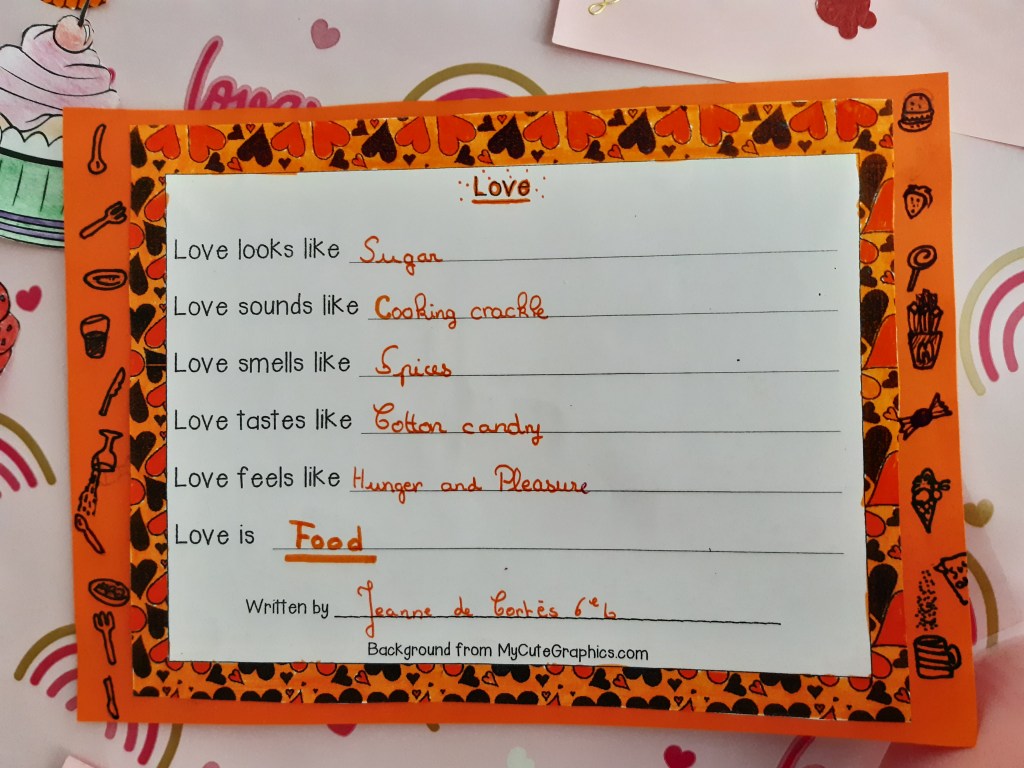 Love
Love looks like Sugar
Love sounds like Cooking crackle
Love smells like Spices
Love tastes like Cotton candy
Love feels like Hunger and Pleasure
Love is Food
Written by Jeanne de Cortès 6e b
Background from MyCuteGraphics.com